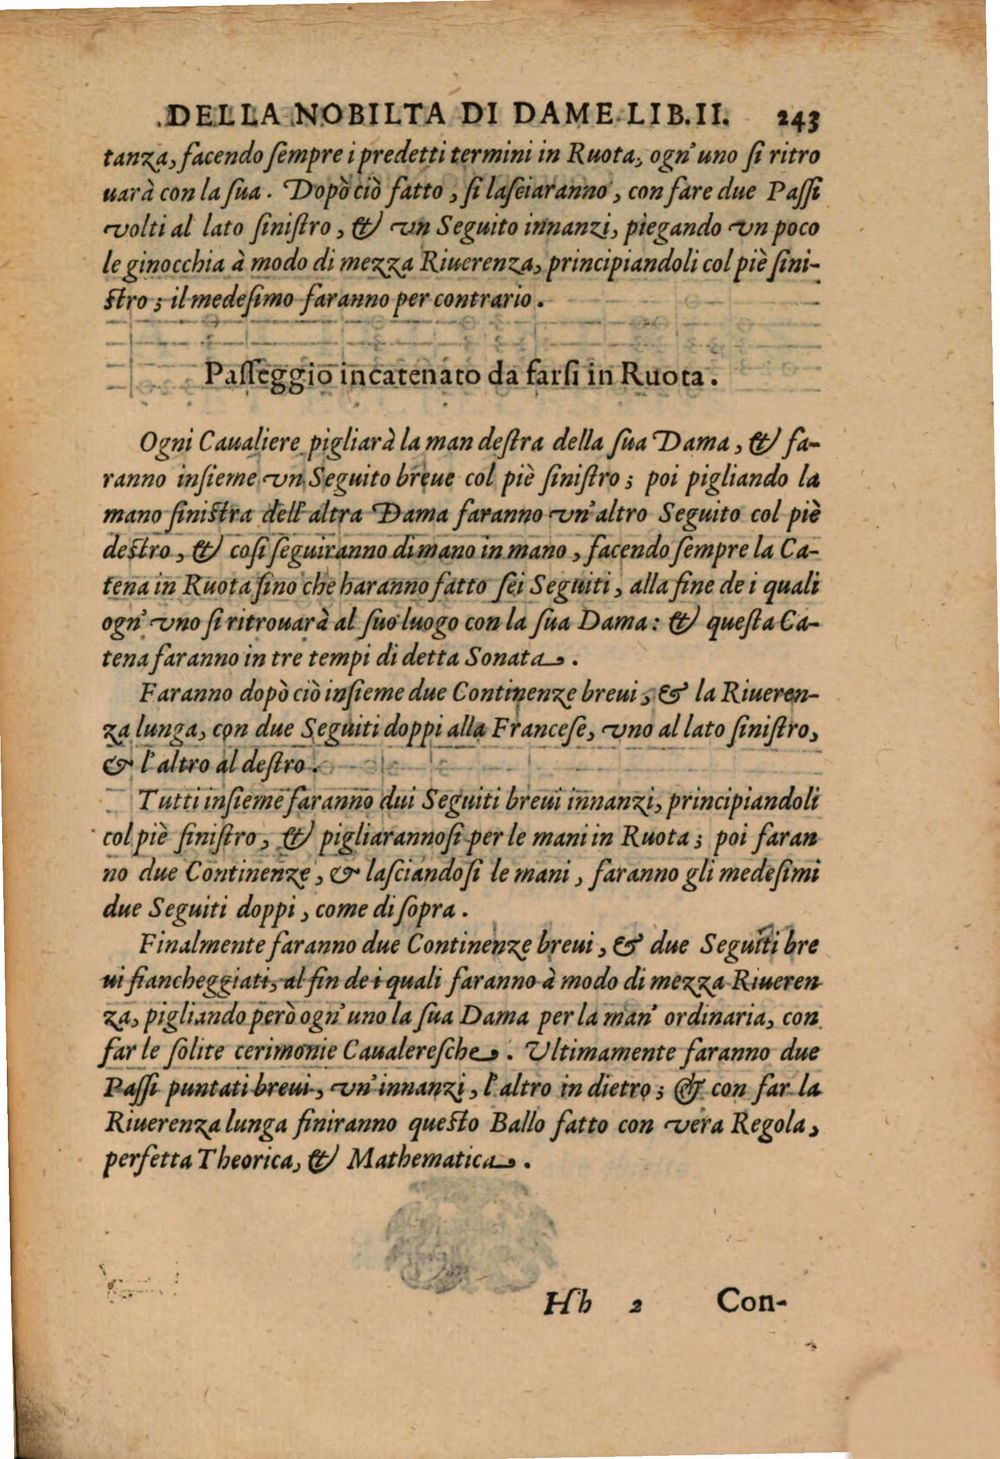 DELLA NOBILTA DI DAME. LIB. II. 243
tanza, facendo ſempre i predetti termini in Ruota, ogn'uno ſi ritro
uarà con la ſua. Dopò ciò fatto, ſi laſciaranno, con fare due Paſſi
volti al lato ſiniſtro, & vn Seguito innanzi, piegando vn poco
le ginocchia à modo di mezza Riuerenza, principiandoli col piè ſini-
ſtro; il medeſimo faranno per contrario.
Paſſeggio incatenato da farſi in Ruota.
Ogni Caualiere pigliarà la man deſtra della ſua Dama, & fa-
ranno inſieme vn Seguito breue col piè ſiniſtro; poi pigliando la
mano ſiniſtra dell'altra Dama faranno vn'altro Seguito col piè
deſtro, & coſi ſeguiranno di mano in mano, facendo ſempre la Ca-
tena in Ruota fino che haranno fatto ſei Seguiti, alla fine de i quali
ogn'vno ſi ritrouarà al ſuo luogo con la ſua Dama: & queſta Ca-
tena faranno in tre tempi di detta Sonata.
Faranno dopò ciò inſieme due Continenze breui, & la Riueren-
za lunga, con due Seguiti doppi alla Franceſe, vno al lato ſiniſtro,
& l'altro al deſtro.
Tutti inſieme faranno dui Seguiti breui innanzi, principiandoli
col piè ſiniſtro, & pigliarannoſi per le mani in Ruota; poi faran
no due Continenze, & laſciandoſi le mani, faranno gli medeſimi
due Seguiti doppi, come di ſopra.
Finalmente faranno due Continenze breui, & due Seguiti bre
ui fiancheggiati, al fin de i quali faranno à modo di mezza Riueren
za, pigliando però ogn'uno la ſua Dama per la man' ordinaria, con
far le ſolite cerimonie Caualereſche. Vltimamente faranno due
Paſſi puntati breui, vn'innanzi, l'altro in dietro; & con far la
Riuerenza lunga finiranno queſto Ballo fatto con vera Regola,
perfetta Theorica, & Mathematica.
Hh 2 Con-